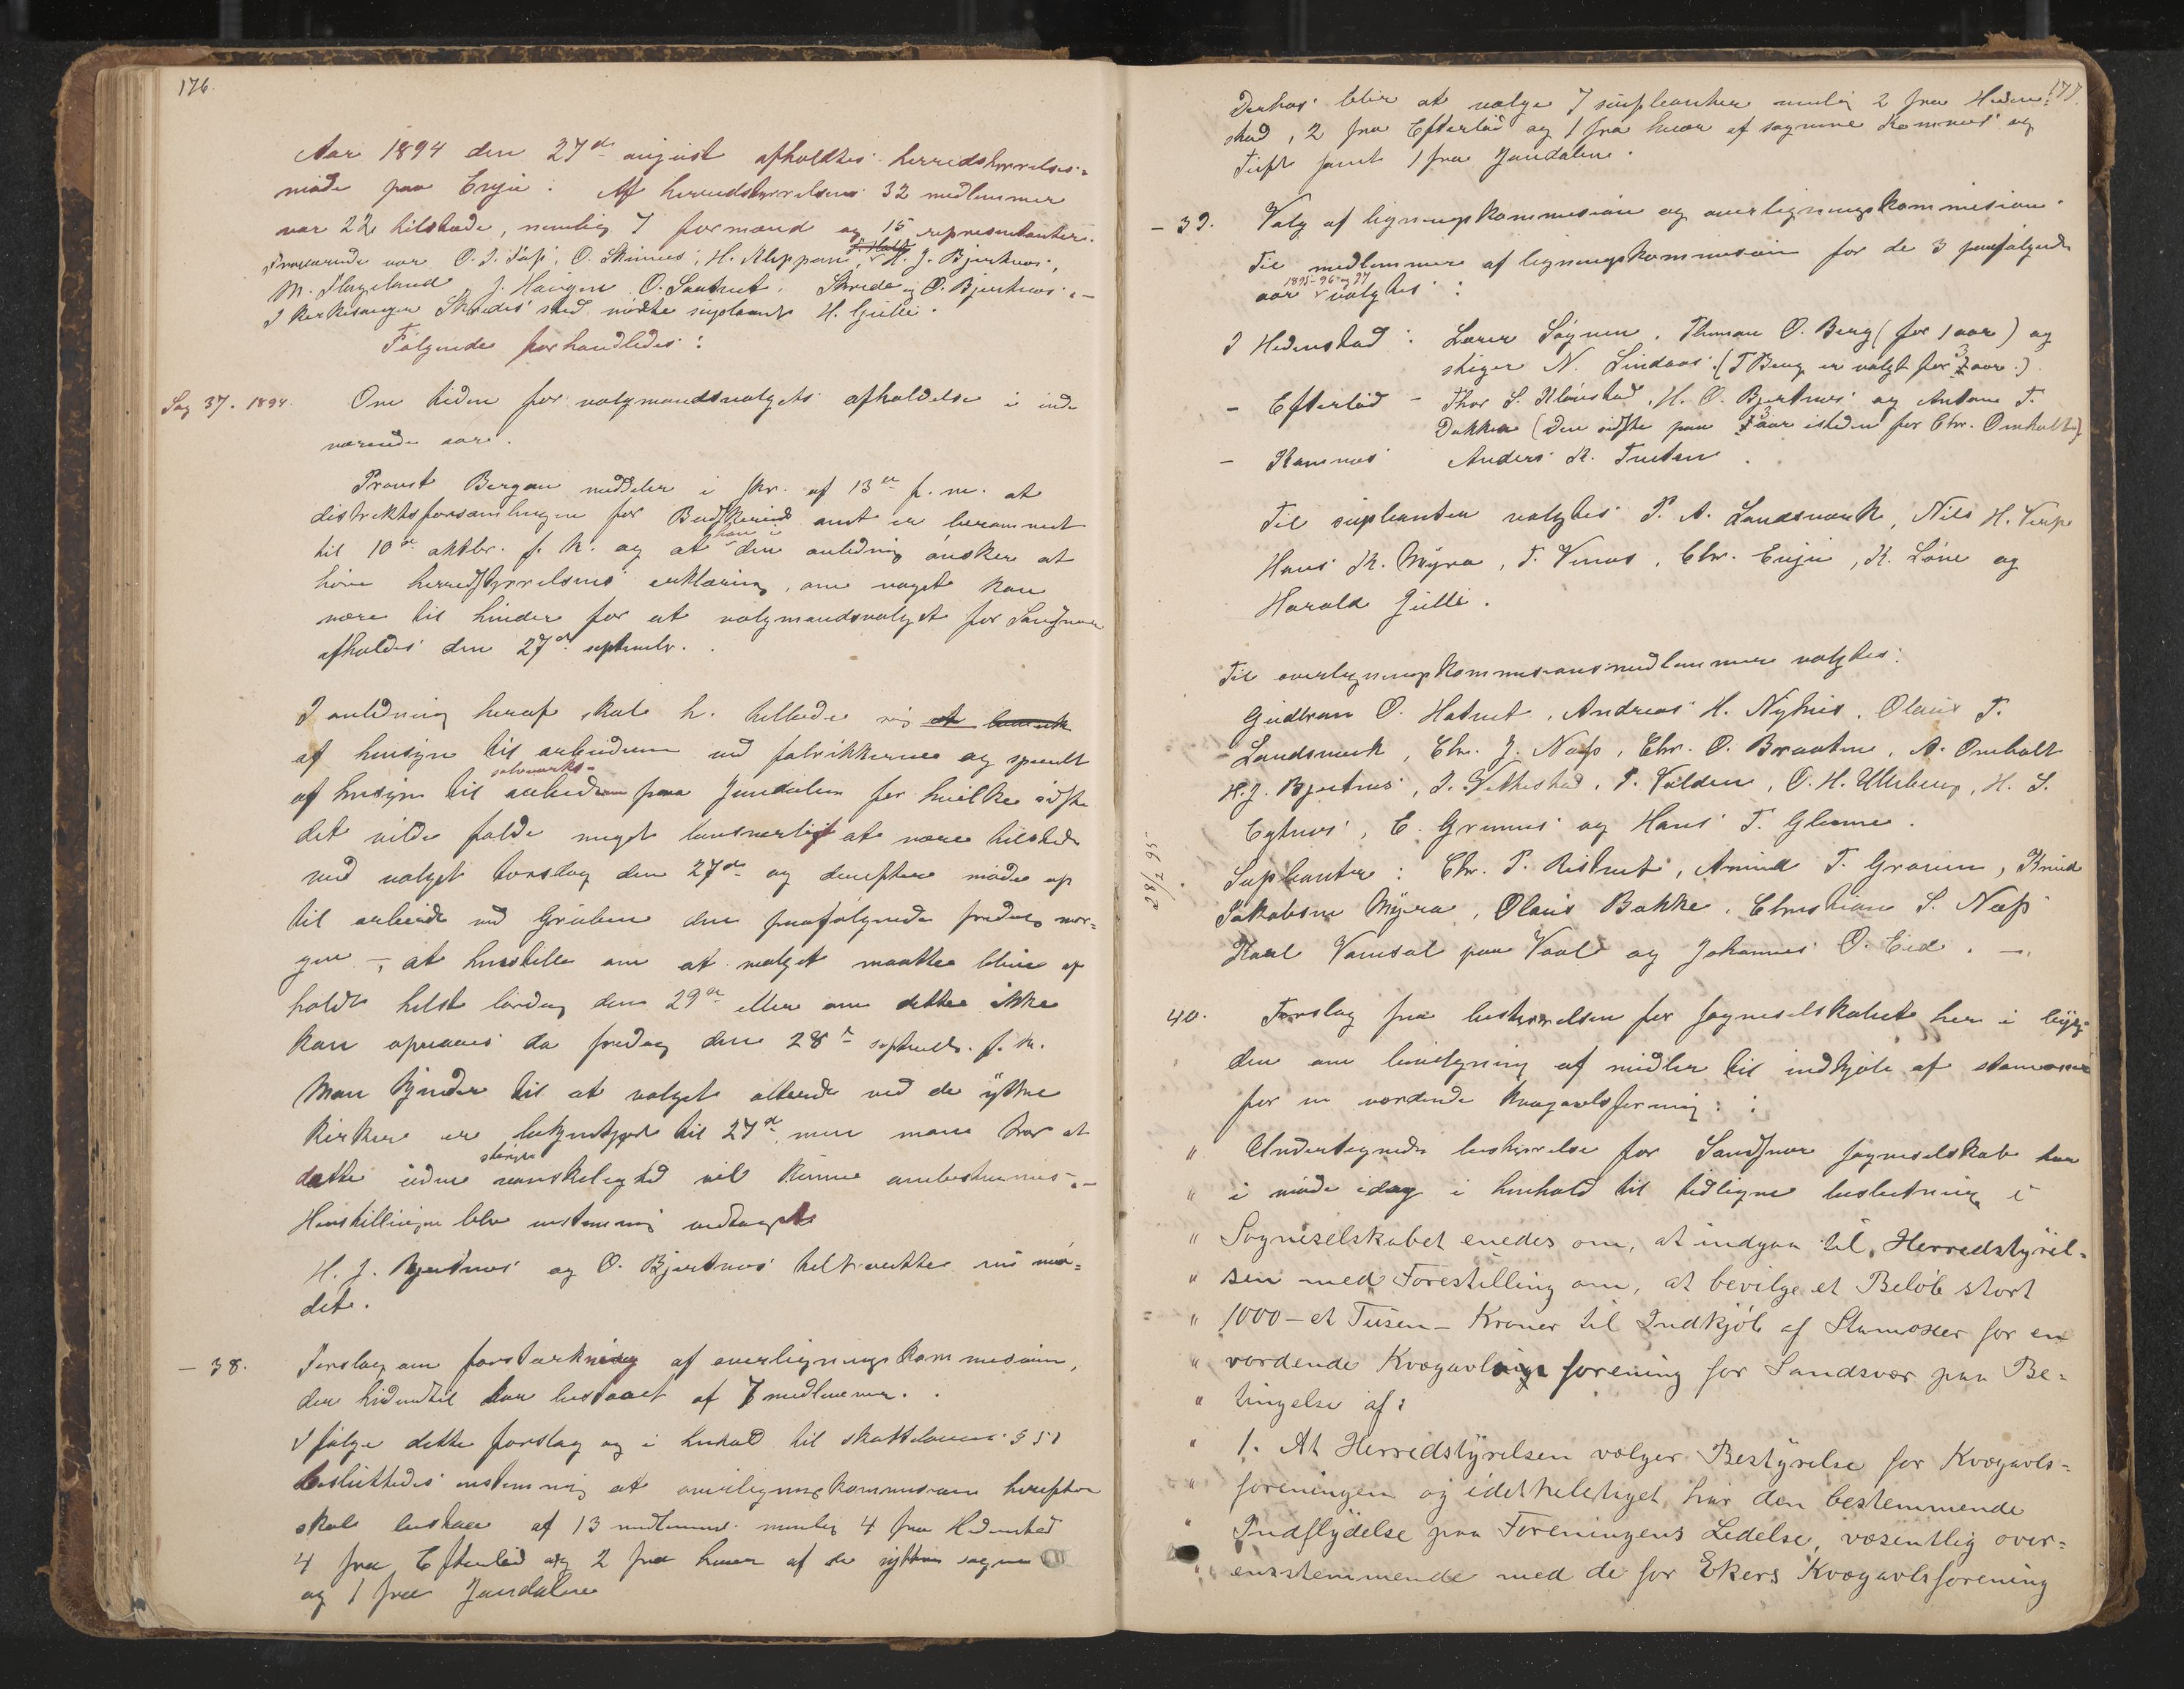 176.
Aar 1894 den 27de august afholdtes herredsstyrelses=
møde paa Enjü. Af herredsstyrelsens 32 medlemmer
var 22 tilstede, nemlig 7 formænd og 15 repræsentanter.
Fraværende var O. J. O. Skinnes, H. Kleppen, H. J. Bjertnæs,
M. Flageland, J. Haugen O. Saatvet, Skrede og O. Bjertnæs.-
I kirkesanger Skredes sted mødte suppleant H. Gulli.
Følgende forhandledes:
Sag 37. 1894. Om tiden for valgmandsvalgets afholdelse i inde
værende aar.
Provst Bergan meddeler i skr. af 13de f. m. at
distriktsforsamlingen for Buskeruds amt er berammet
til 10de oktbr. f. k. og at han i den anledning ønsker at
høre herredsstyrelsens erklæring, om noget kan
være til hinder for at valgmandsvalget for Sandsvær
afholdes den 27de septembr.
I anledning heraf skal h. tillade sig
af hensyn til arbeiderne ved fabrikkerne og specielt
af hensyn til sølvverks-arbeiderne fra Jondalen for hvilke sidste
det vilde falde meget vanskeligt at være tilstede
ved valget torsdag den 27de og derefter møde op
til arbeide ved Gruben den paafølgende fredag mor=
gen -, at henstille om at valget maatte blive af
holdt helst lørdag den 29de eller om dette ikke
kan opnaaes da fredag den 28de septembr. f. k.
Man kjender til at valget allerede ved de ydre
kirker er bekjendtgjort til 27de, men man tror at
dette uden større vanskelighed vil kunne ombestemmes.-
Henstillingen blev enstemmig vedtaget
H. J. Bjertnæs og O. Bjertnæs tiltraadte nu mø=
det.
- 38. Forslag om forstærkning af overligningskommissionen,
der hidindtil har bestaaet af 7 medlemmer.
Ifølge dette forslag og i henhold til skattelovens § 51
besluttedes enstemmig at overligningskommissionen herefter
skal bestaa af 13 medlemmer nemlig 4 fra Hedenstad
4 fra Efteløt og 2 fra hver af de øvrige sogne
og 1 fra Jondalen
177.
Derhos blir at vælge 7 suppleanter nemlig 2 fra Heden=
stad, 2 fra Efteløt og 1 fra hver af sognene Komnes og
Tuft samt 1 fra Jondalen.
- 39. Valg af ligningskommission og overligningskommission.
Til medlemmer af ligningskommission for de 3 paafølgende
aar 1895-96 og 97 valgtes:
I Hedenstad: Lærer Søgnen, Thomas O. Berg (for 1 aar) og
stiger N. Lindaas. (T Berg er valgt for 3 aar.)
- Efteløt - Thor S. Klonstad, H. O. Bjertnæs og Anton T.
Dokken (den sidste paa 3 aar isteden for Chr. Omholt)
- Komnes Anders K. Tveten.
Til suppleanter valgtes P. A. Landsverk, Nils H. Verp
Hans K. Myra, T. Vinæs, Chr. Enjü, K. Løne og
Harald Gulli.
Til overligningskommissionsmedlemmer valgtes:
Gudbran O. Hotvet, Andreas H. Nyhus, Olaus T.
Landsverk, Chr. J. Næss, Chr. O. Braaten, A. Omholt
H. J. Bjertnæs, I. Vittestad, P. Volden, O. H. Ullsberg, H. S.
C. Grennes og Hans T. Glenne.
Suppleanter: Chr. P. Ristvet, Amund T. Graven, Knud
Jakobsen Myra, Olaus Bakke, Christian S. Næss
Karl Vamsøl paa Vaal og Johannes O. Eid. -
28/2 95
40. Forslag fra bestyrelsen for sogneselskabet her i byg=
den om bevilgning af midler til indkjøb af stamoxer
for en vordende kvægavlsforening:
" Undertegnede bestyrelse for Sandsvær sogneselskab har
" i møde idag i henhold til tidligere beslutning i
" Sogneselskabet enedes om, at indgaa til Herredstyrel=
" sen med Forestilling om, at bevilge et Beløb stort
" 1000 - et Tusen - Kroner til Indkjøb af Stamoxer for en
" vordende Kvægavls forening for Sandsvær paa Be=
" tingelse af:
" 1. At Herredstyrelsen vælger Bestyrelse for Kvægavls=
" foreningen og idetheletaget har den bestemmende
" Indflydelse paa Foreningens Ledelse, væsentlig over=
" ensstemmende med de for Ekers Kvægavlsforening